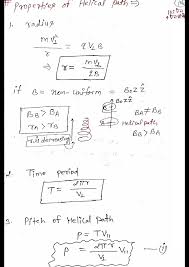 # Properties of Helical path ⇒
1. radius
mv⊥²/r = qV⊥B
⇒ r = mV⊥/qB
if B = non-uniform = B₀z ẑ
B₀z ẑ
BB > BA
rn > rB
BA ≠ BB
Helical path
BA > BA
2. Time period
T = 2πr/V⊥
3. Pitch of Helical path
P = TV₁₁
P = 2πr/V⊥ V₁₁ — (i)